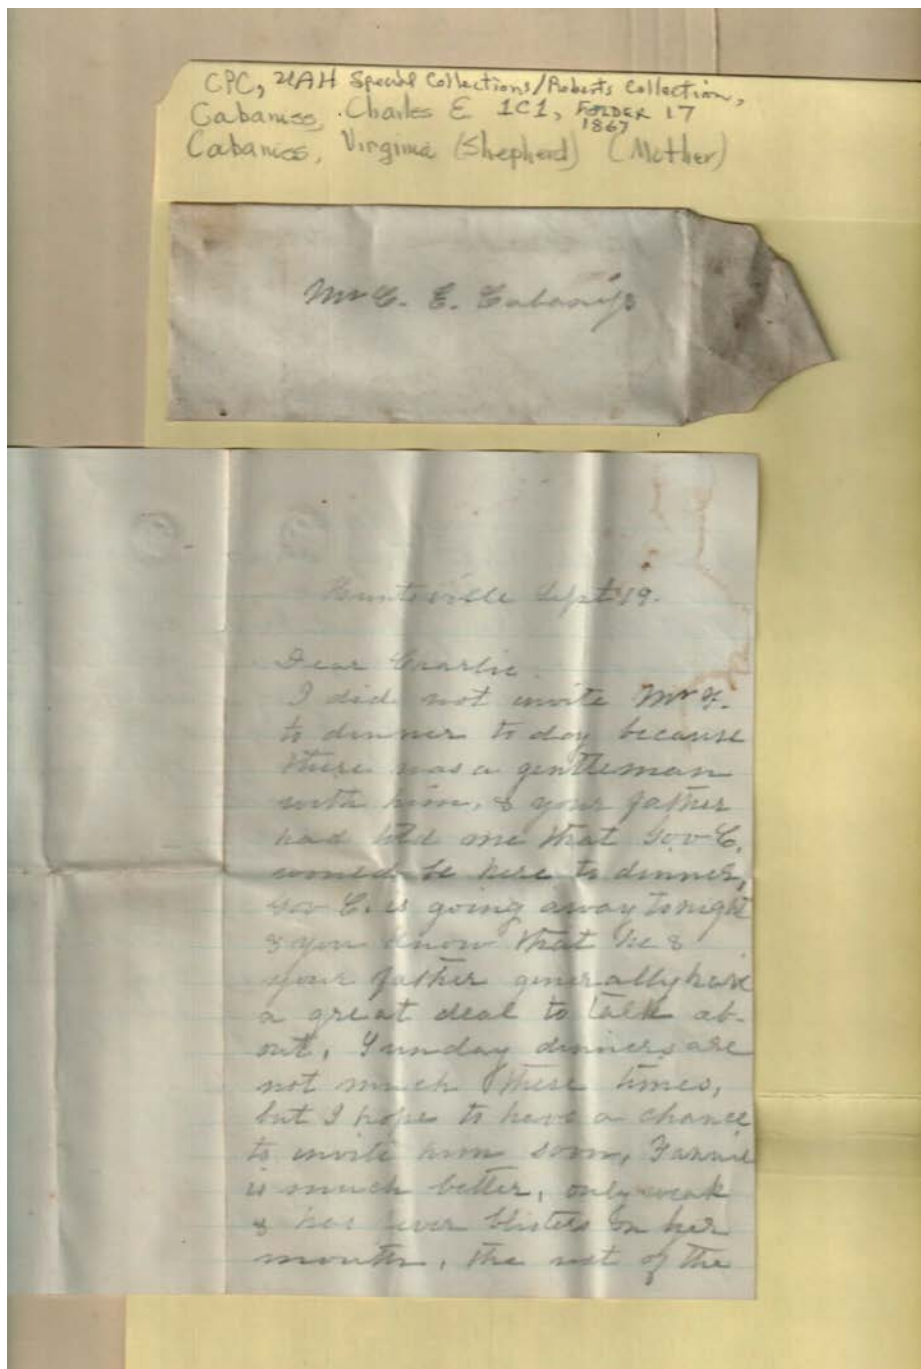 CPC, UAH Special Collections/Roberts Collection,
Cabaniss, Charles E 1C1, FOLDER 17
1867
Cabaniss, Virginia (Shepherd) (Mother)
Mr C. E. Cabaniss
Huntsville Sept 19.
Dear Charlie.
I did not invite Mr F.
to dinner to day because
there was a gentleman
with him, & your father
had told me that Gov C.
would be here to dinner,
Gov C. is going away tonight
& you know that he &
your father generally have
a great deal to talk ab-
out, Sunday dinners are
not much these times,
but I hope to have a chance
to invite him soon, Fannie
is much better, only weak
& has fever blisters on her
mouth, the rest of the